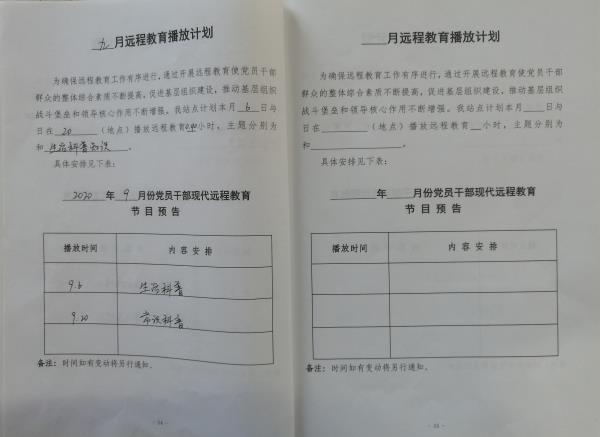 九月远程教育播放计划
为确保远程教育工作有序进行,通过开展远程教育使党员干部
群众的整体综合素质不断提高,促进基层组织建设,推动基层组织
战斗堡垒和领导核心作用不断增强。我站点计划本月6日与
日在20(地点)播放远程教育 小时,主题分别为
和生活科普知识。
具体安排见下表:
2020年9月份党员干部现代远程教育
节目预告
播放时间 内容安排
9.6 生活科普
9.20 常识科普
备注:时间如有变动将另行通知。
- 54 -
月远程教育播放计划
为确保远程教育工作有序进行,通过开展远程教育使党员干部
群众的整体综合素质不断提高,促进基层组织建设,推动基层组织
战斗堡垒和领导核心作用不断增强。我站点计划本月 日与
日在 (地点)播放远程教育 小时,主题分别为
和 。
具体安排见下表:
年 月份党员干部现代远程教育
节目预告
播放时间 内容安排
备注:时间如有变动将另行通知。